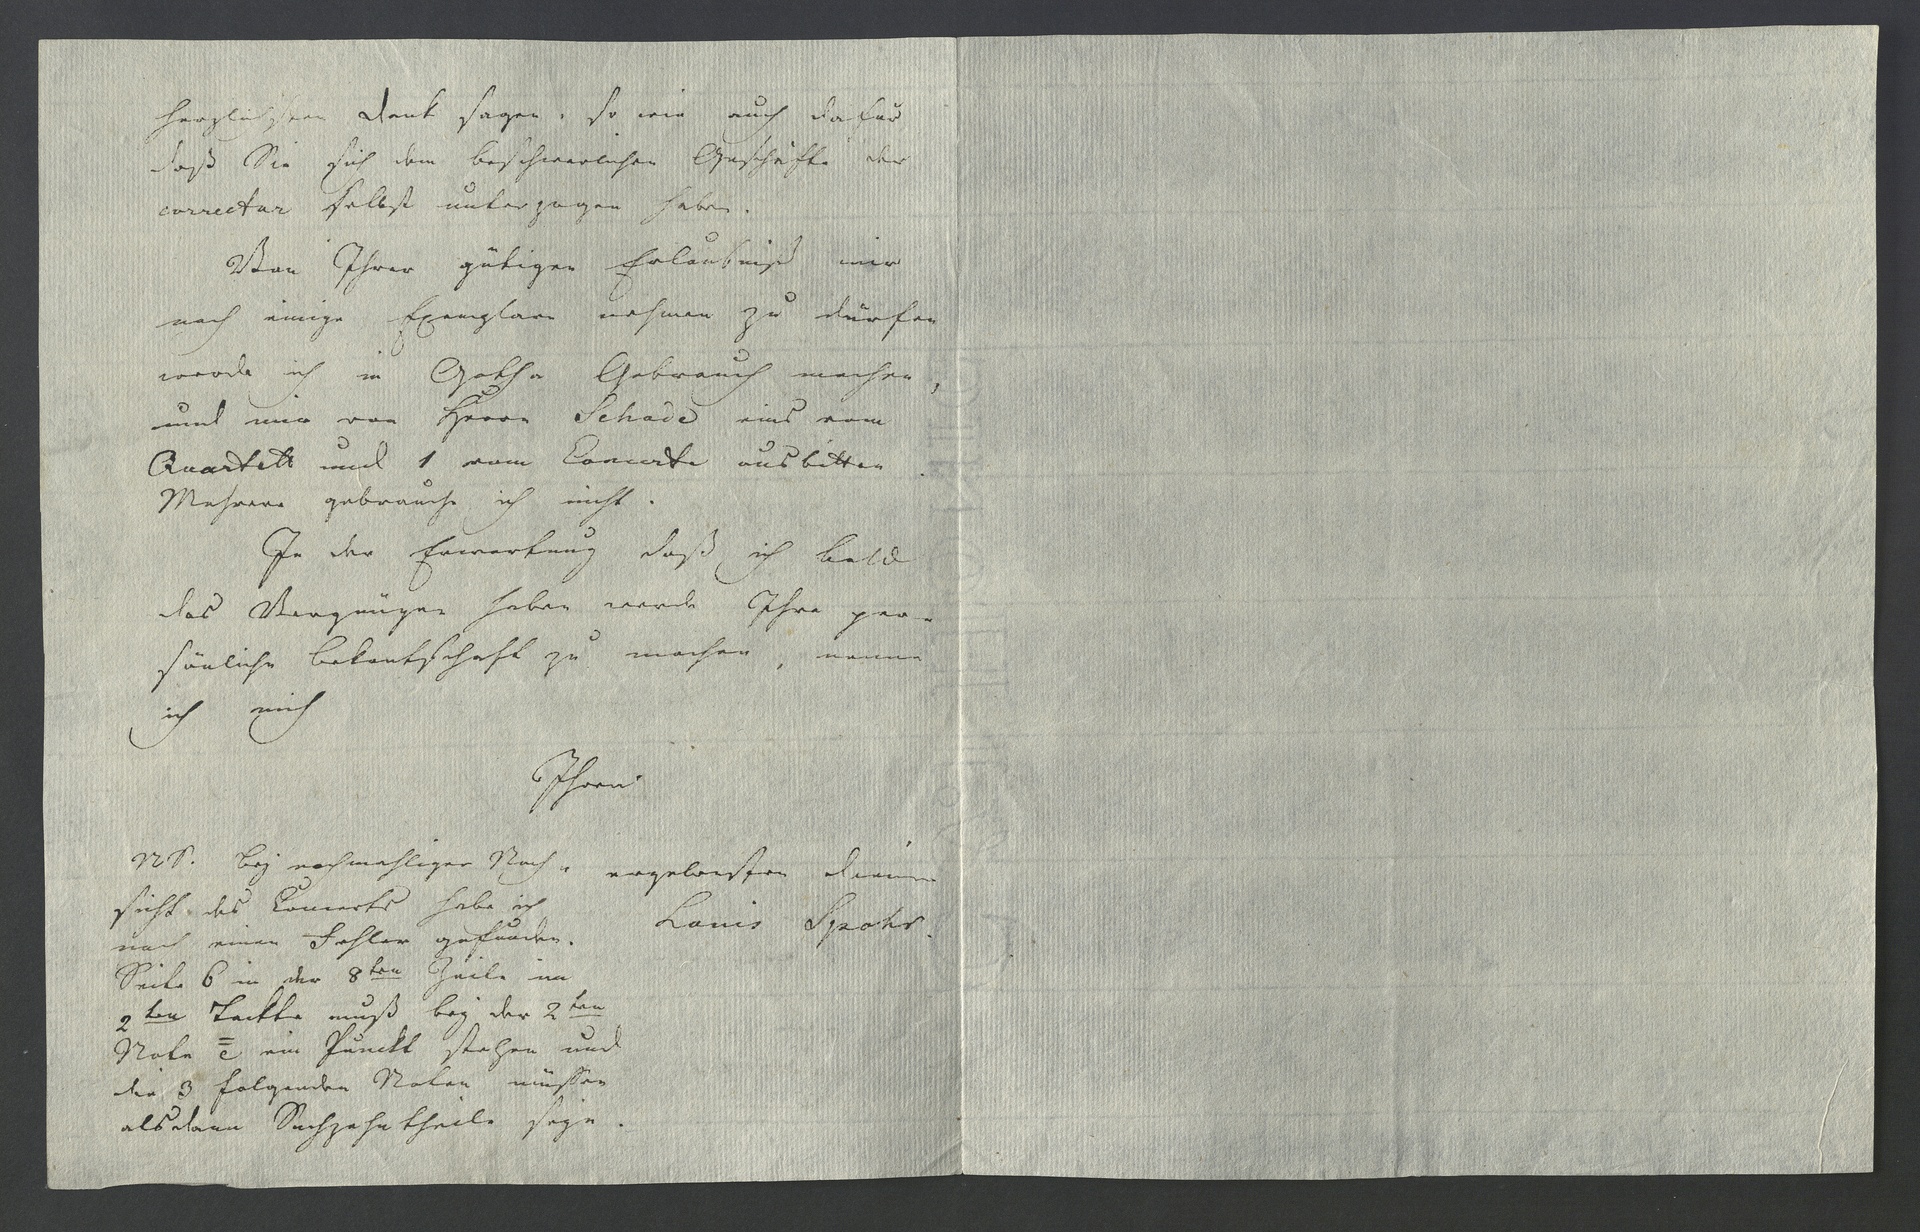 herzlichsten Dank sagen, so wie auch dafür
daß Sie sich dem beschwerlichen Geschäfte der
correctur selbst unterzogen haben.
Von Ihrer gütigen Erlaubniß mir
noch einige Exemplare nehmen zu dürfen
werde ich in Gotha Gebrauch machen,
und mir von Herrn Schade eins vom
Quartett und 1 vom Concerte ausbitten.
Mehrere gebrauche ich nicht.
In der Erwartung daß ich bald
das Vergnügen haben werde Ihre per-
sönliche Bekantschaft zu machen, nenne
ich mich
Ihren
ergebensten Diener
Louis Spohr.
NS. Bey nochmahliger Nach-
sicht des Concerts habe ich
noch einen Fehler gefunden.
Seite 6 in der 8ten Zeile im
2ten Tackte muß bey der 2ten
Note c̿ ein Punckt stehen und
die 3 folgenden Noten müssen
alsdann Sechzehntheile seyn.